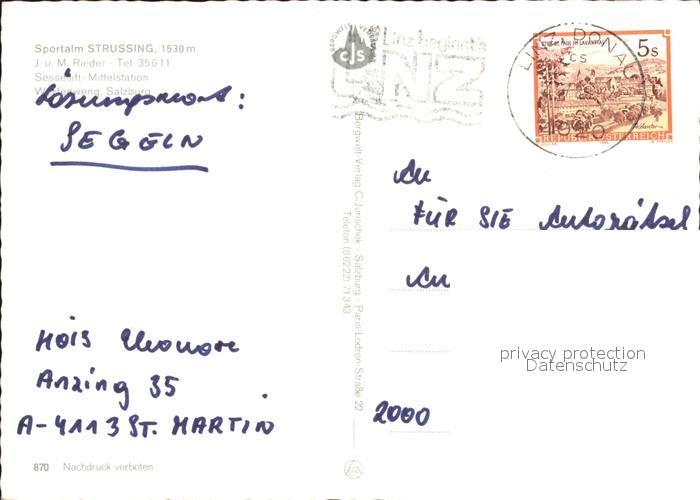 Sportalm STRUSSING, 1530 m
J. u. M. Rieder · Tel. 35611
Sessellift-Mittelstation
Salzburg
Lösungswort:
SEGELN
Hois Eleonore
Anzing 35
A-4113 ST. MARTIN
870 Nachdruck verboten
Bergwelt-Verlag C. Jurischek · Salzburg · Paris-Lodron-Straße 22
Telefon (06222) 71343
BERGWELT VERLAG
cJs
Linz beginnt's
LINZ
LINZ DONAU
cs
4020
STIFT ST. PAUL IM LAVANTTAL
5s
REPUBLIK ÖSTERREICH
An
FÜR SIE Autorätsel
An
2000
privacy protection
Datenschutz